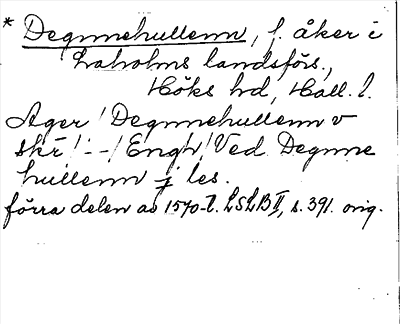 * Degnnehullenn, f. åker i
Laholms landsförs.,
Höks hd, Hall. l.
Ager / Degnnehullenn v
skr / - - / Engh / Ved Degnne
hullenn j les.
förra delen av 1570-t. LSLB II, s. 391. orig.